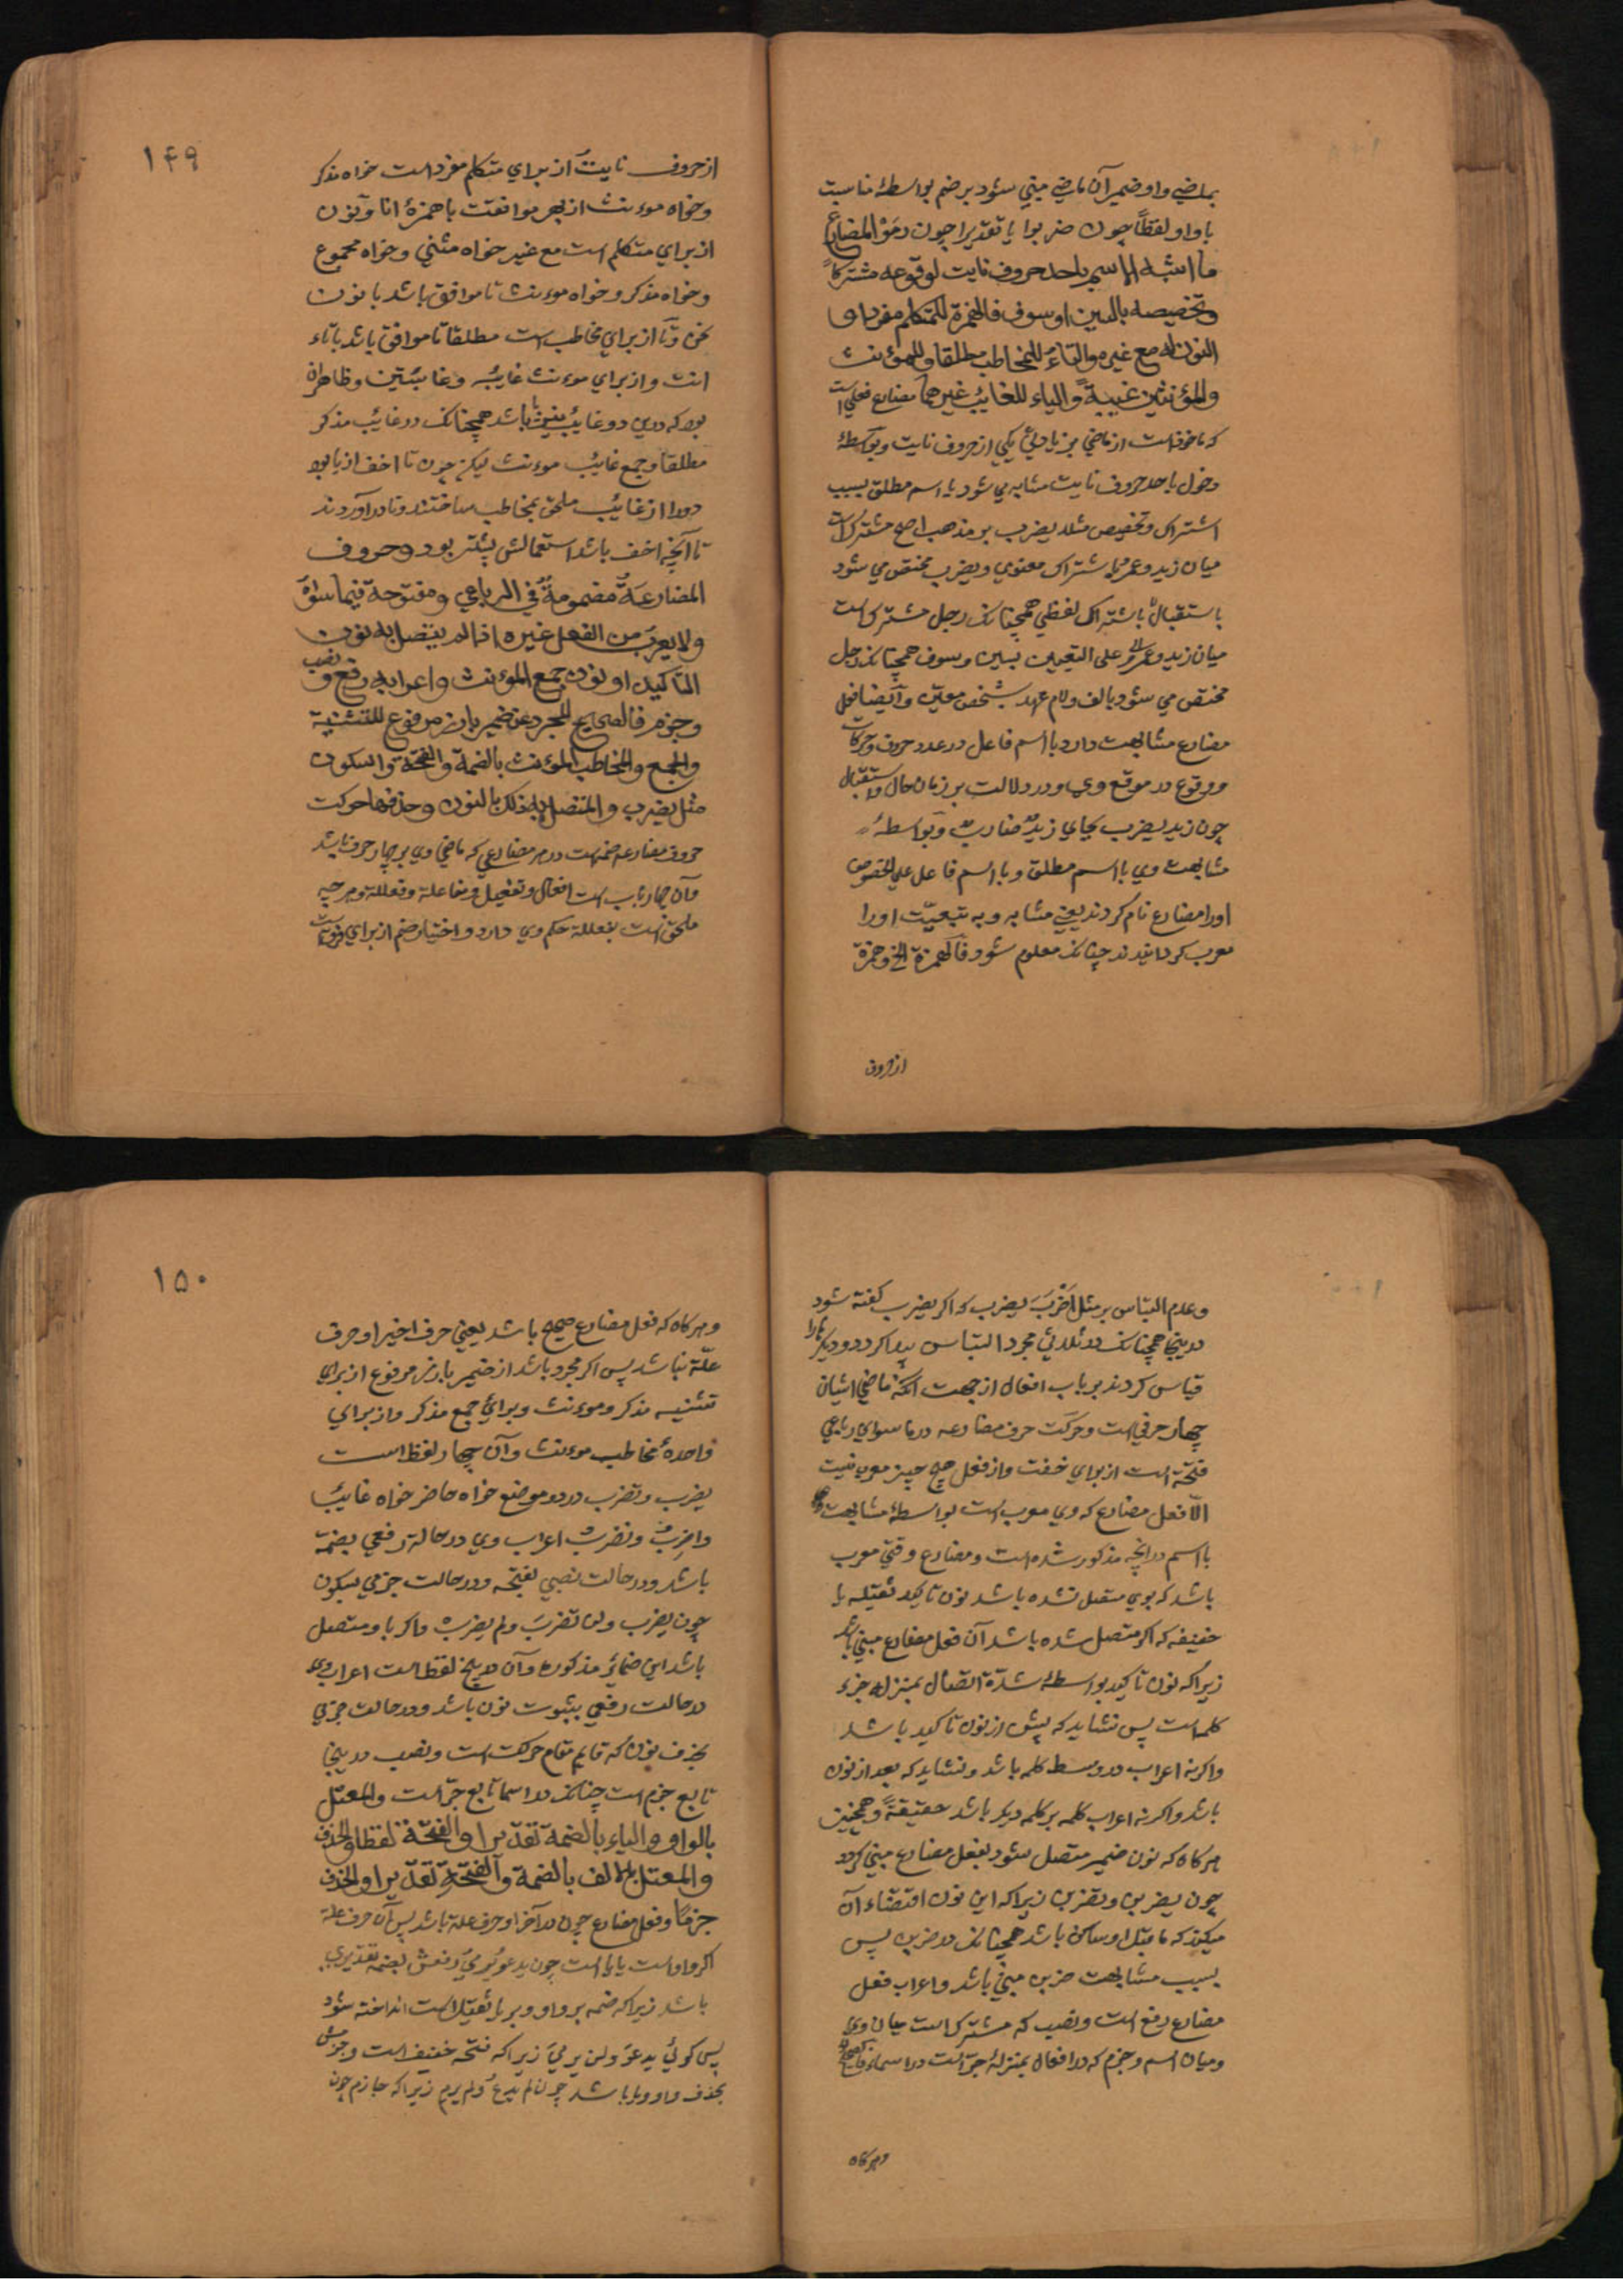 بماضي واو ضمير آن ماضي مبني شود بر ضم بواسطهٔ مناسبت
با واو لفظاً چون ضربوا يا تقديرا چون رموْ المضارع
ما اشبه الاسم باحد حروف نايت لوقوعه مشتركاً
وتخصيصه بالسين او سوف فالهمزة للمتكلم مفردا و
النون له مع غيره والتاءُ للمخاطب مطلقا وللمؤنث
والمؤنثين غيبةً والياء للغائب غيرهما مضارع فعلي است
كه ماخوذ است از ماضي بزيادتي يكي از حروف نايت وبواسطهٔ
دخول باحد حروف نايت مشابه مي شود با اسم مطلق بسبب
اشتراك وتخصيص مثلا يضرب بر مذهب اصح مشترك است
ميان زيد وعمر باشتراك معنوي ويضرب مختص مي شود
باستقبال باشتراك لفظي همچنانكه رجل مشترك است
ميان زيد وعمرو لا على التعيين بسين وسوف همچنانكه رجل
مختص مي شود بالف ولام عهد بشخص معين وايضا فعل
مضارع مشابهت دارد با اسم فاعل در عدد حروف وحركات
ووقوع در موقع وي ودر دلالت بر زمان حال واستقبال
چون زيد يضرب بجاي زيدٌ ضاربٌ وبواسطهٔ
مشابهت وي با اسم مطلق وبا اسم فاعل علي الخصوص
اورا مضارع نام كردند يعني مشابه وبه تبعيّت اورا
معرب كردانيدند چنانكه معلوم شود فالهمزة الخ وهمزة
از حروف
۱۴۹
از حروف نايت از براي متكلم مفرد است خواه مذكر
وخواه موءنث از بهر موافقت با همزهٔ انا ونون
از براي متكلم است مع غير خواه مثني وخواه مجموع
وخواه مذكر وخواه موءنث تا موافق باشد با نون
نحن وتا از براي مخاطب است مطلقا تا موافق باشد باتاء
انت واز براي موءنث غايبه وغائبتين وظاهر ان
بود كه درين دو غايب نيز يا باشد همچنانكه در غايب مذكر
مطلقا وجمع غايب موءنث ليكن چون تا اخف از يا بود
دورا از غايب ملحق بمخاطب ساختند وتا در آوردند
تا آنچه اخف باشد استعمالش بيشتر بود وحروف
المضارعةُ مضمومةٌ في الرباعي ومفتوحة فيما سواهُ
ولا يعرب من الفعل غيره اذا لم يتصل به نون
التاكيد او نون جمع المؤنث واعرابه رفع ونصب
وجزم فالصحيح المجرد عن ضمير بارز مرفوع للتثنية
والجمع والمخاطب المؤنث بالضمة والفتحة والسكون
مثل يضرب والمتصل به ذلك بالنون وحذفها حركت
حروف مضارعه ضمه است در هر مضارعي كه ماضي وي بر چهار حرف باشد
وآن چهار باب است افعال وتفعيل ومفاعلة وفعللة وهر چه
ملحق است بفعللة حكم وي دارد واختيار ضم از براي فرق است
وعدم التباس بر مثل اَضْرَبَ يضرب كه اكر يضرب كفته شود
درينجا همچنانكه در ثلاثي مجرد التباس پيدا كردد وديكر بابها را
قياس كردند بر باب افعال از جهت آنكه ماضي ايشان
چهار حرفي است وحركت حرف مضارعه در ما سواي رباعي
فتحة است از براي خفت واز فعل هيچ چيز معرب نيست
الّا فعل مضارع كه وي معرب است بواسطهٔ مشابهت وي
با اسم در آنچه مذكور شده است ومضارع وقتي معرب
باشد كه بوي متصل نشده باشد نون تاكيد ثقيله يا
خفيفه كه اكر متصل شده باشد آن فعل مضارع مبني باشد
زيرا كه نون تاكيد بواسطهٔ شدّة اتصال بمنزله جزء
كلمه است پس نشايد كه پيش از نون تاكيد باشد
واكرنه اعراب در وسط كلمه باشد ونشايد كه بعد از نون
باشد واكرنه اعراب كلمه بر كلمه ديكر باشد حقيقةً وهمچنين
هركاه كه نون ضمير متصل شود بفعل مضارع مبني كردد
چون يضربن وتضربن زيرا كه اين نون اقتضاء آن
ميكند كه ما قبل او ساكن باشد همچنانكه در ضربن پس
بسبب مشابهت ضربن مبني باشد واعراب فعل
مضارع رفع است ونصب كه مشترك است ميان وي
وميان اسم وجزم كه در افعال بمنزلهٔ جرّ است در اسماء
وهركاه
۱۵۰
وهركاه كه فعل مضارع صحيح باشد يعني حرف اخير او حرف
علّة نباشد پس اكر مجرد باشد از ضمير بارز مرفوع از براي
تثنيه مذكر وموءنث وبراي جمع مذكر واز براي
واحدهٔ مخاطب موءنث وآن چهار لفظ است
يضرب وتضرب در دو موضع خواه حاضر خواه غايب
واضرب ونضرب اعراب وي در حالة رفعي بضمّة
باشد ودر حالت نصبي بفتحه ودر حالت جزمي بسكون
چون يضرب ولن تضربَ ولم يضربْ واكر باو متصل
باشد اين ضمائر مذكوره وآن در پنج لفظ است اعراب وي
در حالت رفعي بثبوت نون باشد ودر حالت جزمي
بحذف نون كه قايم مقام حركت است ونصب درينجا
تابع جزم است چنانكه در اسما تابع جرّ است والمعتل
بالواو والياء بالضمة تقديرا والفتحة لفظا والحذف
والمعتل بالالف بالضمة والفتحةِ تقديرا والحذف
جزماً وفعل مضارع چون در آخر او حرف علة باشد پس آن حرف علة
اكر واو است يا يا است چون يدعو ويرمي رفعش بضمه تقديري
باشد زيرا كه ضمه بر واو وبر يا ثقيل است انداخته شود
پس كوئي يدعوَ ولن يرميَ زيرا كه فتحه خفيف است وجزمش
بحذف واو ويا باشد چون لم يدعُ ولم يرمِ زيرا كه جازم چون